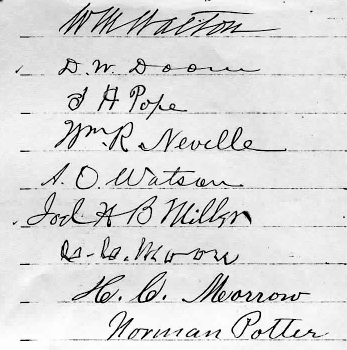 Wm Walton
D. W. Doom
J H Pope
Wm. R. Neville
A. O. Watson
Jod. A B Miller
Moore
H. C. Morrow
Norman Potter